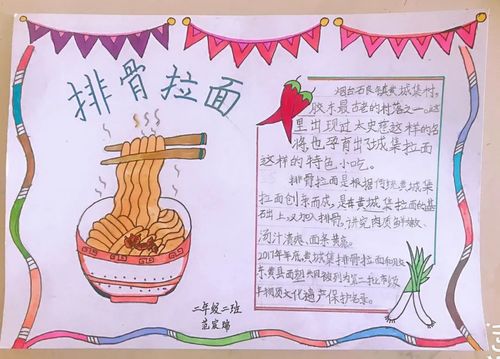 排骨拉面
烟台石良镇黄城集村，
胶东最古老的村落之一，这
里出现过太史慈这样的名
将也孕育出黄城集拉面
这样的特色小吃。
排骨拉面是根据传统黄城集
拉面创新而成，是在黄城集拉面的基
础上，又加入排骨，讲究肉质鲜嫩、
汤汁清爽、面条黄亮。
2017年年底，黄城集排骨拉面和胶
东黄县面塑共同被列为第二批市级
非物质文化遗产保护名录。
二年级二班
范宸